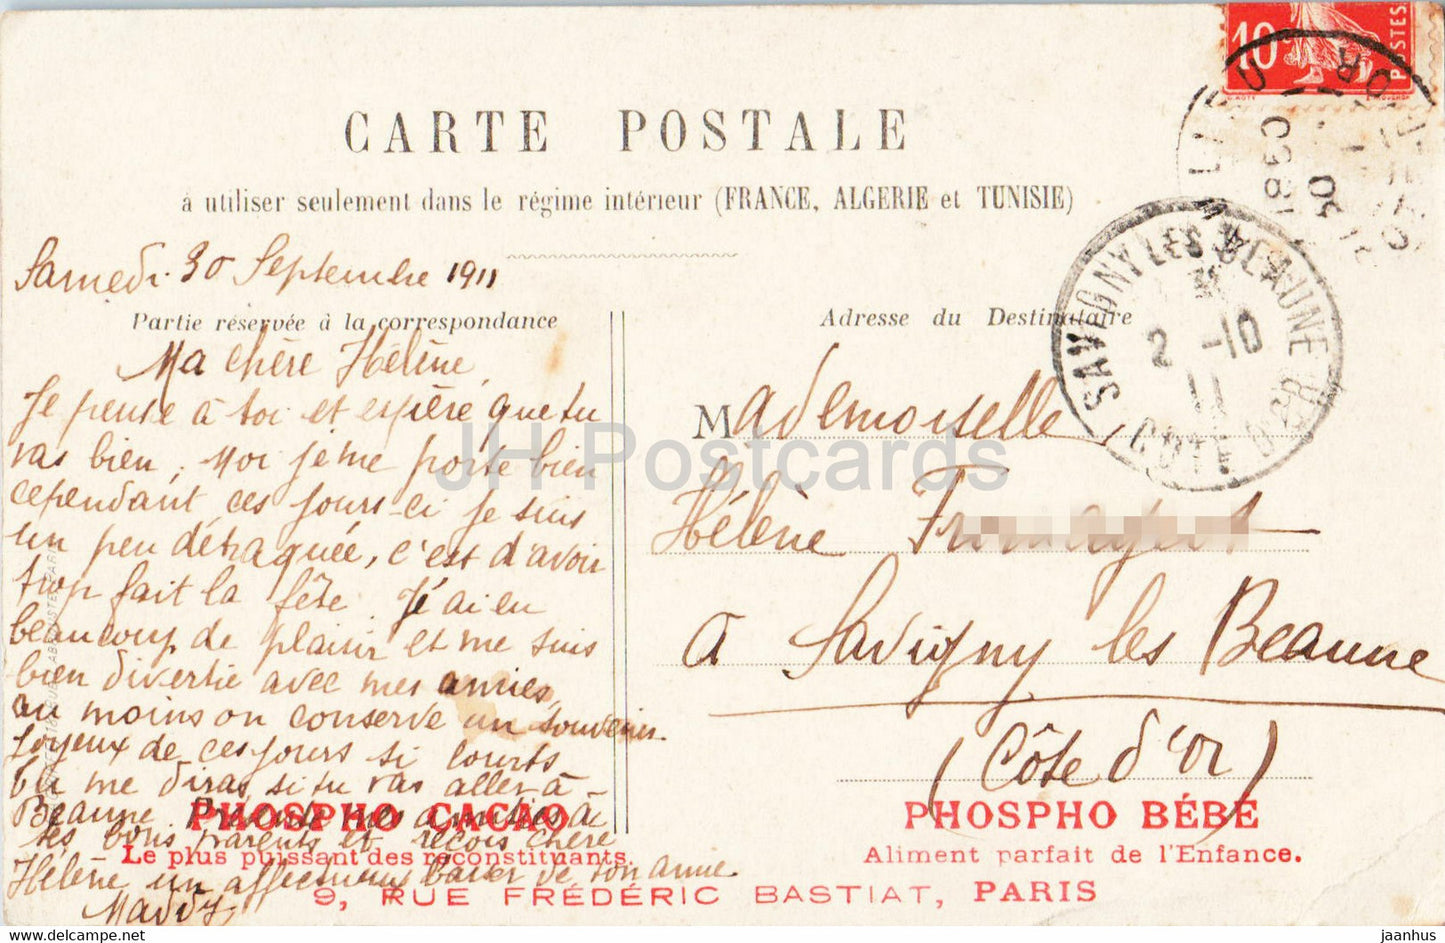 CARTE POSTALE
à utiliser seulement dans le régime intérieur (FRANCE, ALGERIE et TUNISIE)
Samedi 30 Septembre 1911
Partie réservée à la correspondance
Ma chère Hélène,
Je pense à toi et espère que tu
vas bien. Moi je me porte bien
cependant ces jours-ci je suis
un peu détraquée, c'est d'avoir
trop fait la fête. J'ai eu
beaucoup de plaisir et me suis
bien divertie avec mes amies,
au moins on conserve un souvenir
joyeux de ces jours si courts
tu me diras si tu vas aller à
Beaune. Présente mes amitiés à
tes bons parents et reçois chère
Hélène un affectueux baiser de ton amie
PHOSPHO CACAO
Le plus puissant des reconstituants.
Adresse du Destinataire
Mademoiselle
Hélène
à Savigny les Beaune
(Côte d'Or)
PHOSPHO BÉBÉ
Aliment parfait de l'Enfance.
9, RUE FRÉDÉRIC BASTIAT, PARIS
10
POSTES
SAVIGNY LES BEAUNE
2 -10
11
COTE D'OR
JH Postcards
www.delcampe.net
jaanhus